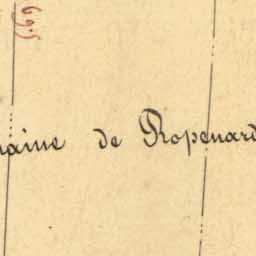 695
naine de Ropenard